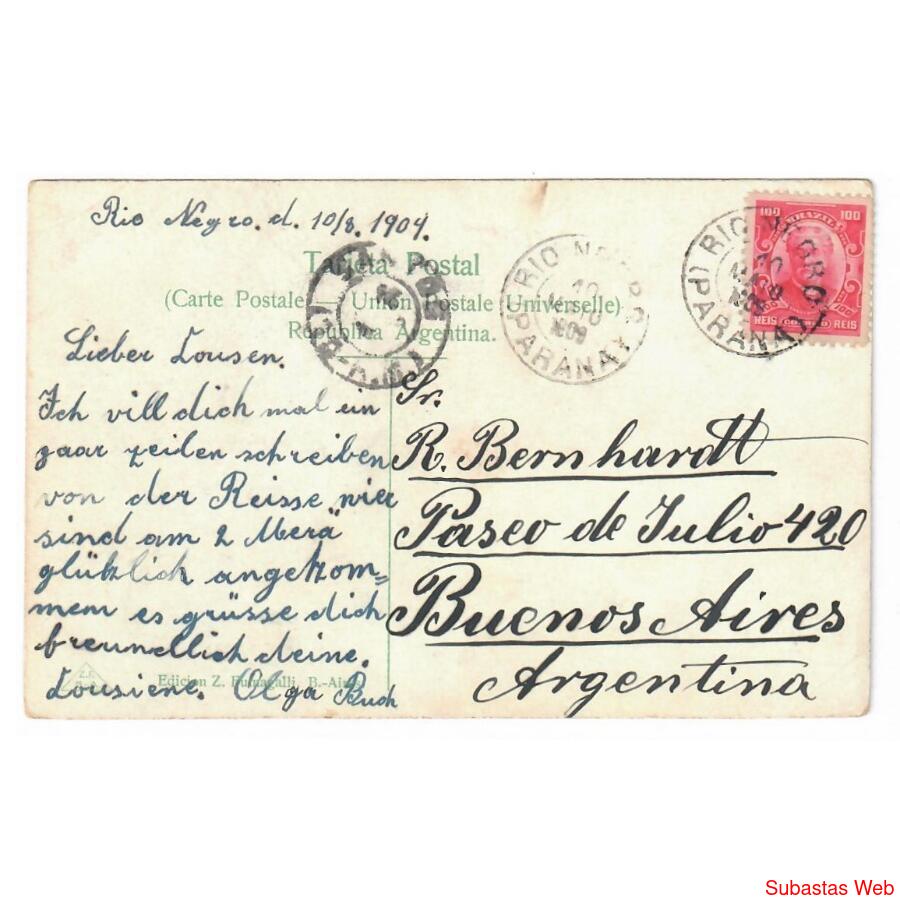 Rio Negro. d. 10/3. 1909.
Tarjeta Postal
(Carte Postale — Union Postale Universelle)
República Argentina.
Lieber Cousen.
Ich vill dich mal ein
paar zeilen schreiben
von der Reisse wier
sind am 2 Merä
glüklich angekom=
mem es grüsse dich
freundlich deine.
Cousiene. Olga Buch
Edicion Z. Fumagalli, B.-Aires
Z.F.
RIO NEGRO
10
1909
(PARANÁ)
RIO NEGRO
10
1909
(PARANÁ)
BRAZIL
100 100
REIS REIS
Sr.
R. Bernhardt
Paseo de Julio 420
Buenos Aires
Argentina
Subastas Web